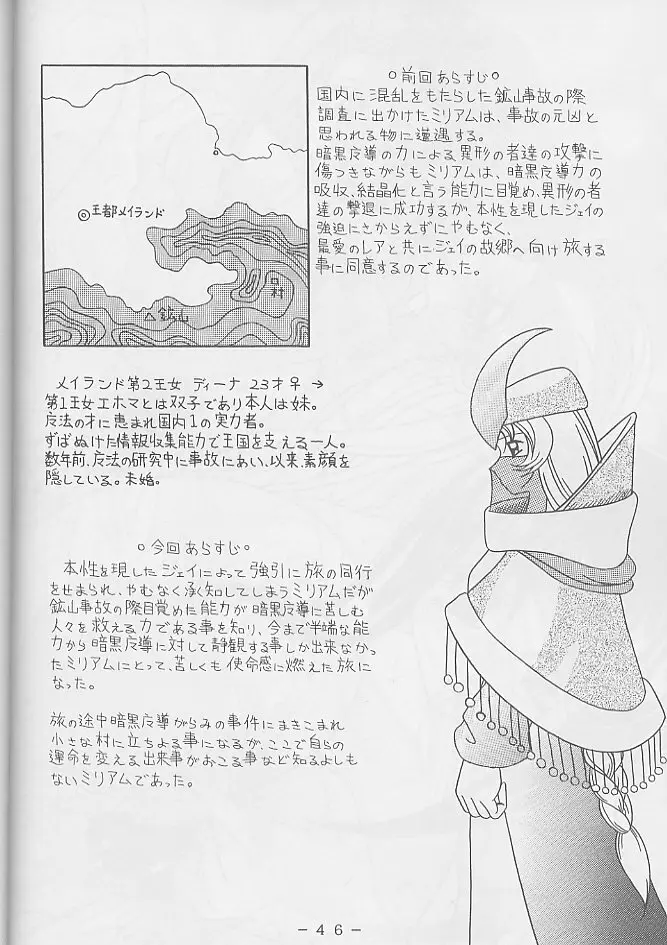 ○前回あらすじ○
国内に混乱をもたらした鉱山事故の際
調査に出かけたミリアムは、事故の元凶と
思われる物に遭遇する。
暗黒反導の力による異形の者達の攻撃に
傷つきながらもミリアムは、暗黒反導力の
吸収、結晶化と言う能力に目覚め、異形の者
達の撃退に成功するが、本性を現したジェイの
強迫にさからえずにやむなく、
最愛のレアと共にジェイの故郷へ向け旅する
事に同意するのであった。
◎王都メイランド
△鉱山
□村
メイランド第2王女 ディーナ 23才♀→
第1王女エホマとは双子であり本人は妹。
反法の才に恵まれ国内1の実力者。
ずばぬけた情報収集能力で王国を支える一人。
数年前、反法の研究中に事故にあい、以来、素顔を
隠している。未婚。
○今回あらすじ○
本性を現したジェイによって強引に旅の同行
をせまられ、やむなく承知してしまうミリアムだが
鉱山事故の際目覚めた能力が暗黒反導に苦しむ
人々を救える力である事を知り、今まで半端な能
力から暗黒反導に対して静観する事しか出来なかっ
たミリアムにとって、苦しくも使命感に燃えた旅に
なった。
旅の途中暗黒反導がらみの事件にまきこまれ
小さな村に立ちよる事になるが、ここで自らの
運命を変える出来事がおこる事など知るよしも
ないミリアムであった。
－46－